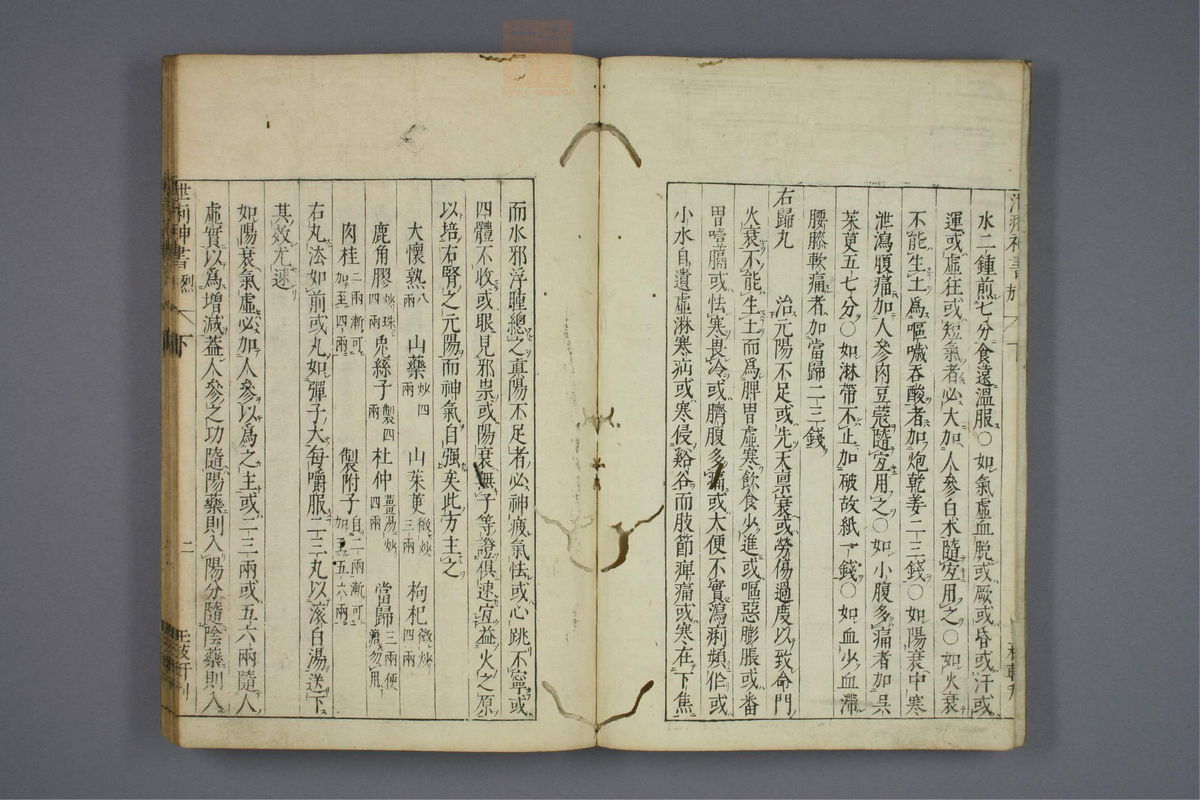 水二鍾煎七分食遠溫服○如氣虛血脫或厥或昏或汗或
運或虛狂或短氣者必大加人參白朮隨宜用之○如火衰
不能生土爲嘔噦吞酸者加炮乾姜二三錢○如陽衰中寒
泄瀉腹痛加人參肉豆蔻隨宜用之○如小腹多痛者加吳
茱萸五七分○如淋帶不止加破故紙一錢○如血少血滯
腰膝軟痛者加當歸二三錢
右歸丸 治元陽不足或先天禀衰或勞傷過度以致命門
火衰不能生土而爲脾胃虛寒飲食少進或嘔惡膨脹或番
胃噎膈或怯寒畏冷或臍腹多痛或大便不實瀉痢頻作或
小水自遺虛淋寒疝或寒侵谿谷而肢節痺痛或寒在下焦
而水邪浮腫總之眞陽不足者必神疲氣怯或心跳不寧或
四體不收或眼見邪祟或陽衰無子等證俱速宜益火之原
以培右腎之元陽而神氣自强矣此方主之
大懷熟八兩 山藥炒四兩 山茱萸微炒三兩 枸杞微炒四兩
鹿角膠炒珠四兩 兎絲子製四兩 杜仲薑湯炒四兩 當歸三兩便溏勿用
肉桂二兩漸可加至四兩 製附子自二兩漸可加至五六兩
右丸法如前或丸如彈子大每嚼服二三丸以滾白湯送下
其效尤速
如陽衰氣虛必加人參以爲之主或二三兩或五六兩隨人
虛實以爲增減蓋人參之功隨陽藥則入陽分隨陰藥則入
神書 烈 下 二